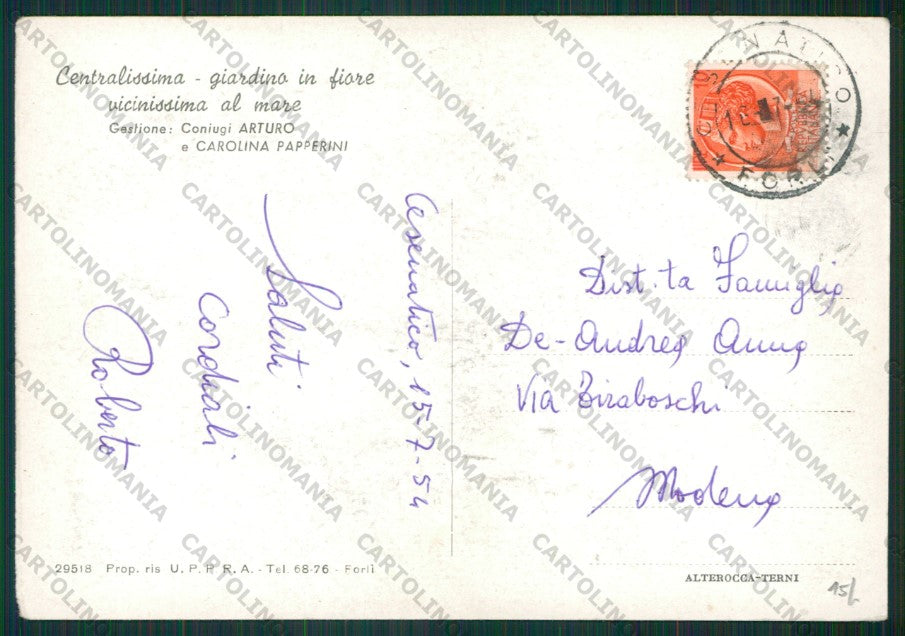 Centralissima - giardino in fiore
vicinissima al mare
Gestione: Coniugi ARTURO
e CAROLINA PAPPERINI
Cesenatico, 15-7-54
Saluti
Cordiali
Roberto
FORLI
Dist.ta Famiglia
De-Andrea Anna
Via Tiraboschi
Modena
29518 Prop. ris U. P. P. R. A. - Tel. 68-76 - Forlì
ALTEROCCA-TERNI
15/-
CARTOLINOMANIA